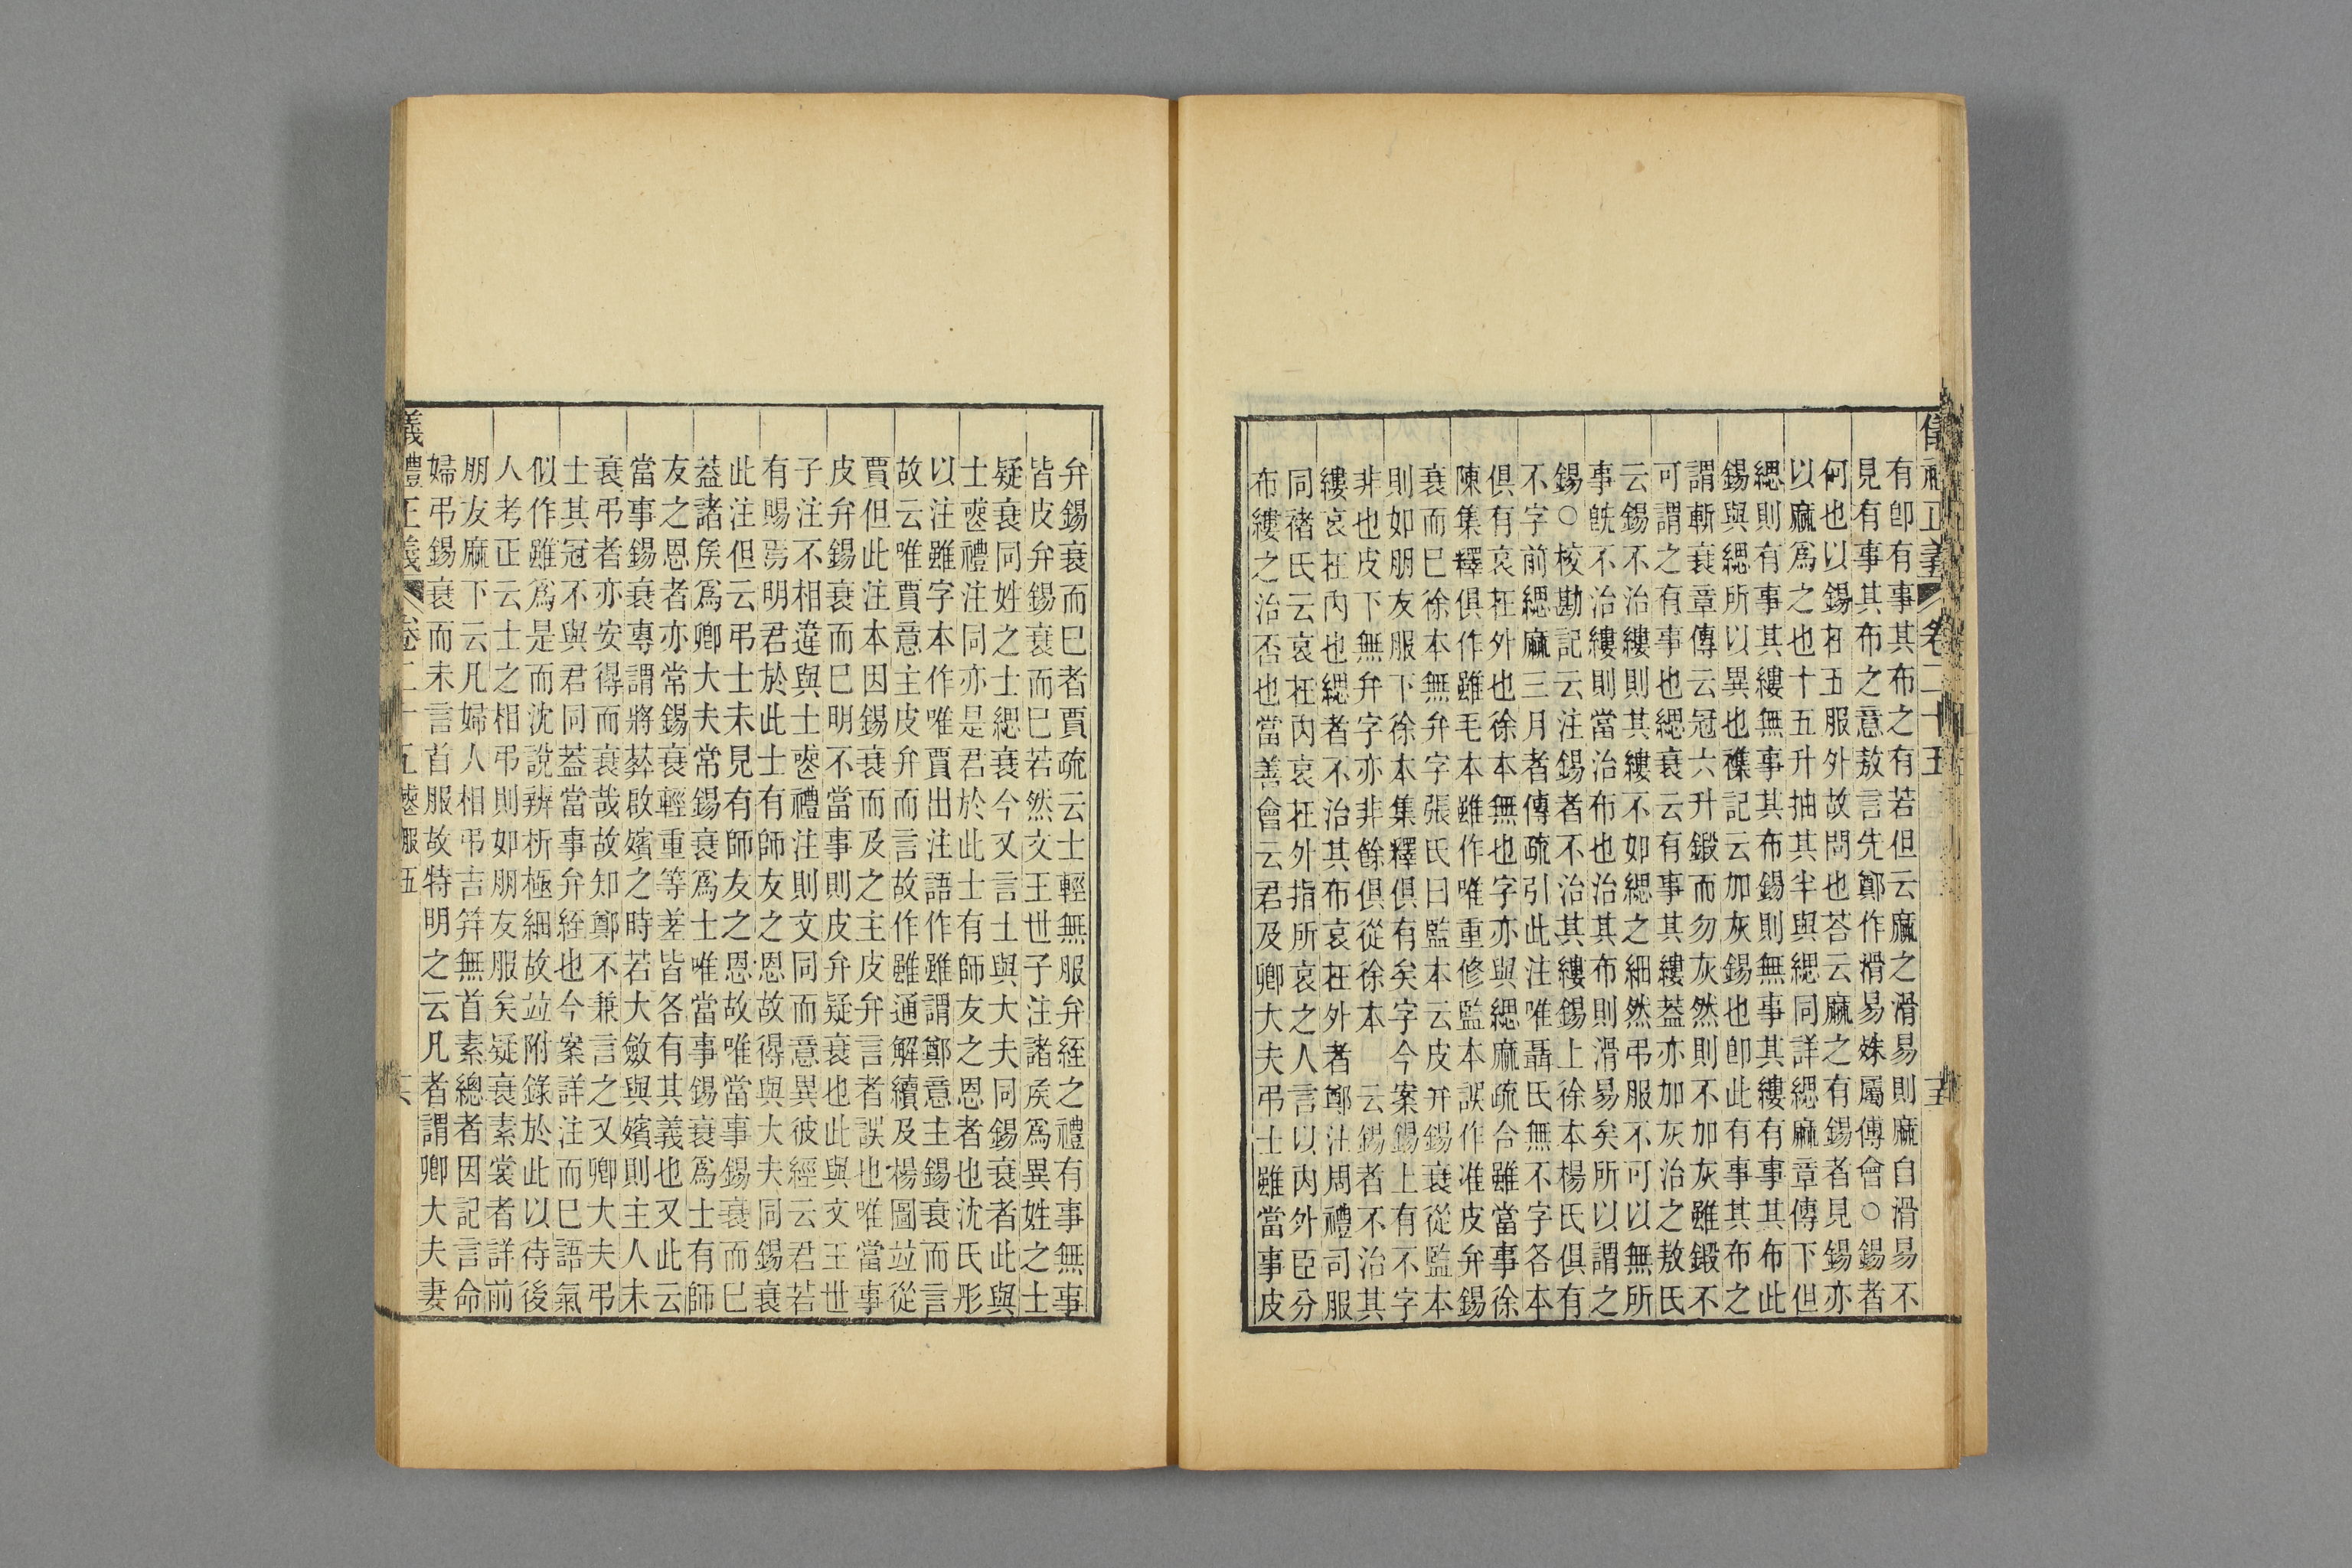 有卽有事其布之有若但云麻之滑易則麻自滑易不
見有事其布之意敖言先鄭作滑易姝屬傳會○錫者
何也以錫在五服外故問也荅云麻之有錫者見錫亦
以麻爲之也十五升抽其半與緦同詳緦麻章傳下但
緦則有事其縷無事其布錫則無事其縷有事其布此
錫與緦所以異也襍記云加灰錫也卽此有事其布之
謂斬衰章傳云冠六升鍛而勿灰然則不加灰雖鍛不
可謂之有事也緦衰云有事其縷蓋亦加灰治之敖氏
云錫不治縷則其縷不如緦之細然弔服不可以無所
事旣不治縷則當治布也治其布則滑易矣所以謂之
錫○校勘記云注錫者不治其縷錫上徐本楊氏俱有
不字前緦麻三月者傳疏引此注唯聶氏無不字各本
俱有哀在外也徐本無也字亦與緦麻疏合雖當事徐
陳集釋俱作雖毛本雖作唯重修監本誤作准皮弁錫
衰而巳徐本無弁字張氏曰監本云皮弁錫衰從監本
則如朋友服下徐本集釋俱有矣字今案錫上有不字
非也皮下無弁字亦非餘俱從徐本 云錫者不治其
縷哀在內也緦者不治其布哀在外者 鄭注周禮司服
同褚氏云哀在內哀在外指所哀之人言以內外臣分
布縷之治否也當善會云君及卿大夫弔士雖當事皮
弁錫衰而巳者賈疏云士輕無服弁絰之禮有事無事
皆皮弁錫衰而巳若然文王世子注諸矦爲異姓之士
疑衰同姓之士緦衰今又言士與大夫同錫衰者此與
士喪禮注同亦是君於此士有師友之恩者也沈氏彤
以注雖字本作唯賈出注語作雖謂鄭意主錫衰而言
故云唯賈意主皮弁而言故作雖通解續及楊圖竝從
賈但此注本因錫衰而及之主皮弁言者誤也唯當事
皮弁錫衰而巳明不當事則皮弁疑衰也此與文王世
子注不相違與士喪禮注則文同而意異彼經云君若
有賜焉明君於此士有師友之恩故得與大夫同錫衰
此注但云弔士未見有師友之恩故唯當事錫衰而巳
蓋諸矦爲卿大夫常錫衰爲士唯當事錫衰爲士有師
友之恩者亦常錫衰輕重等差皆各有其義也又此云
當事錫衰專謂將葬啟殯之時若大斂與殯則主人未
衰弔者亦安得而衰哉故知鄭不兼言之又卿大夫弔
士其冠不與君同蓋當事弁絰也今案詳注而巳語氣
似作雖爲是而沈說辨析極細故竝附錄於此以待後
人考正云士之相弔則如朋友服矣疑衰素裳者詳前
朋友麻下云凡婦人相弔吉笄無首素總者因記言命
婦弔錫衰而未言首服故特明之云凡者謂卿大夫妻